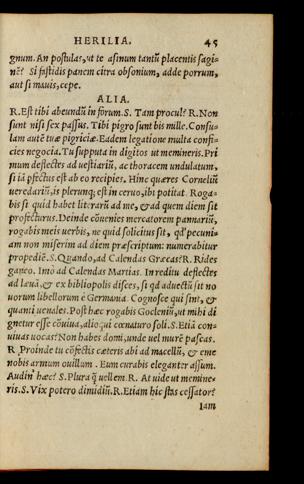 HERILIA. 45
gnum. An postulas, ut te asinum tantũ placentis sagi-
nẽ? Si fastidis panem citra obsonium, adde porrum,
aut si mauis, cepe.
ALIA.
R. Est tibi abeundũ in forum. S. Tam procul? R. Non
sunt nisi sex passus. Tibi pigro sunt bis mille. Consu-
lam autẽ tuæ pigriciæ. Eadem legatione multa confi-
cies negocia. Tu supputa in digitos ut memineris. Pri
mum deflectes ad uestiariũ, ac thoracem undulatum,
si iã pfectus est ab eo recipies. Hinc quæres Corneliũ
ueredariũ, is plerunq; est in ceruo, ibi potitat. Roga-
bis si quid habet literarũ ad me, & ad quem diem sit
profecturus. Deinde cõuenies mercatorem pannariũ,
rogabis meis uerbis, ne quid solicitus sit, qd' pecuni-
am non miserim ad diem præscriptum: numerabitur
propediẽ. S. Quando, ad Calendas Græcas? R. Rides
ganeo. Imò ad Calendas Martias. In reditu deflectes
ad læuã, & ex bibliopolis disces, si qd aduectũ sit no
uorum libellorum è Germania. Cognosce qui sint, &
quanti uenales. Post hæc rogabis Gocleniũ, ut mihi di
gnetur esse cõuiua, alioqui cœnaturo soli. S. Etiã con-
uiuas uocas? Non habes domi, unde uel murẽ pascas.
R Proinde tu cõfectis cæteris abi ad macellũ, & eme
nobis armum ouillum. Eum curabis eleganter assum.
Audin' hæc? S. Plura q̃ uellem. R. At uide ut memine-
ris. S. Vix potero dimidiũ. R. Etiam hic stas cessator?
Iam